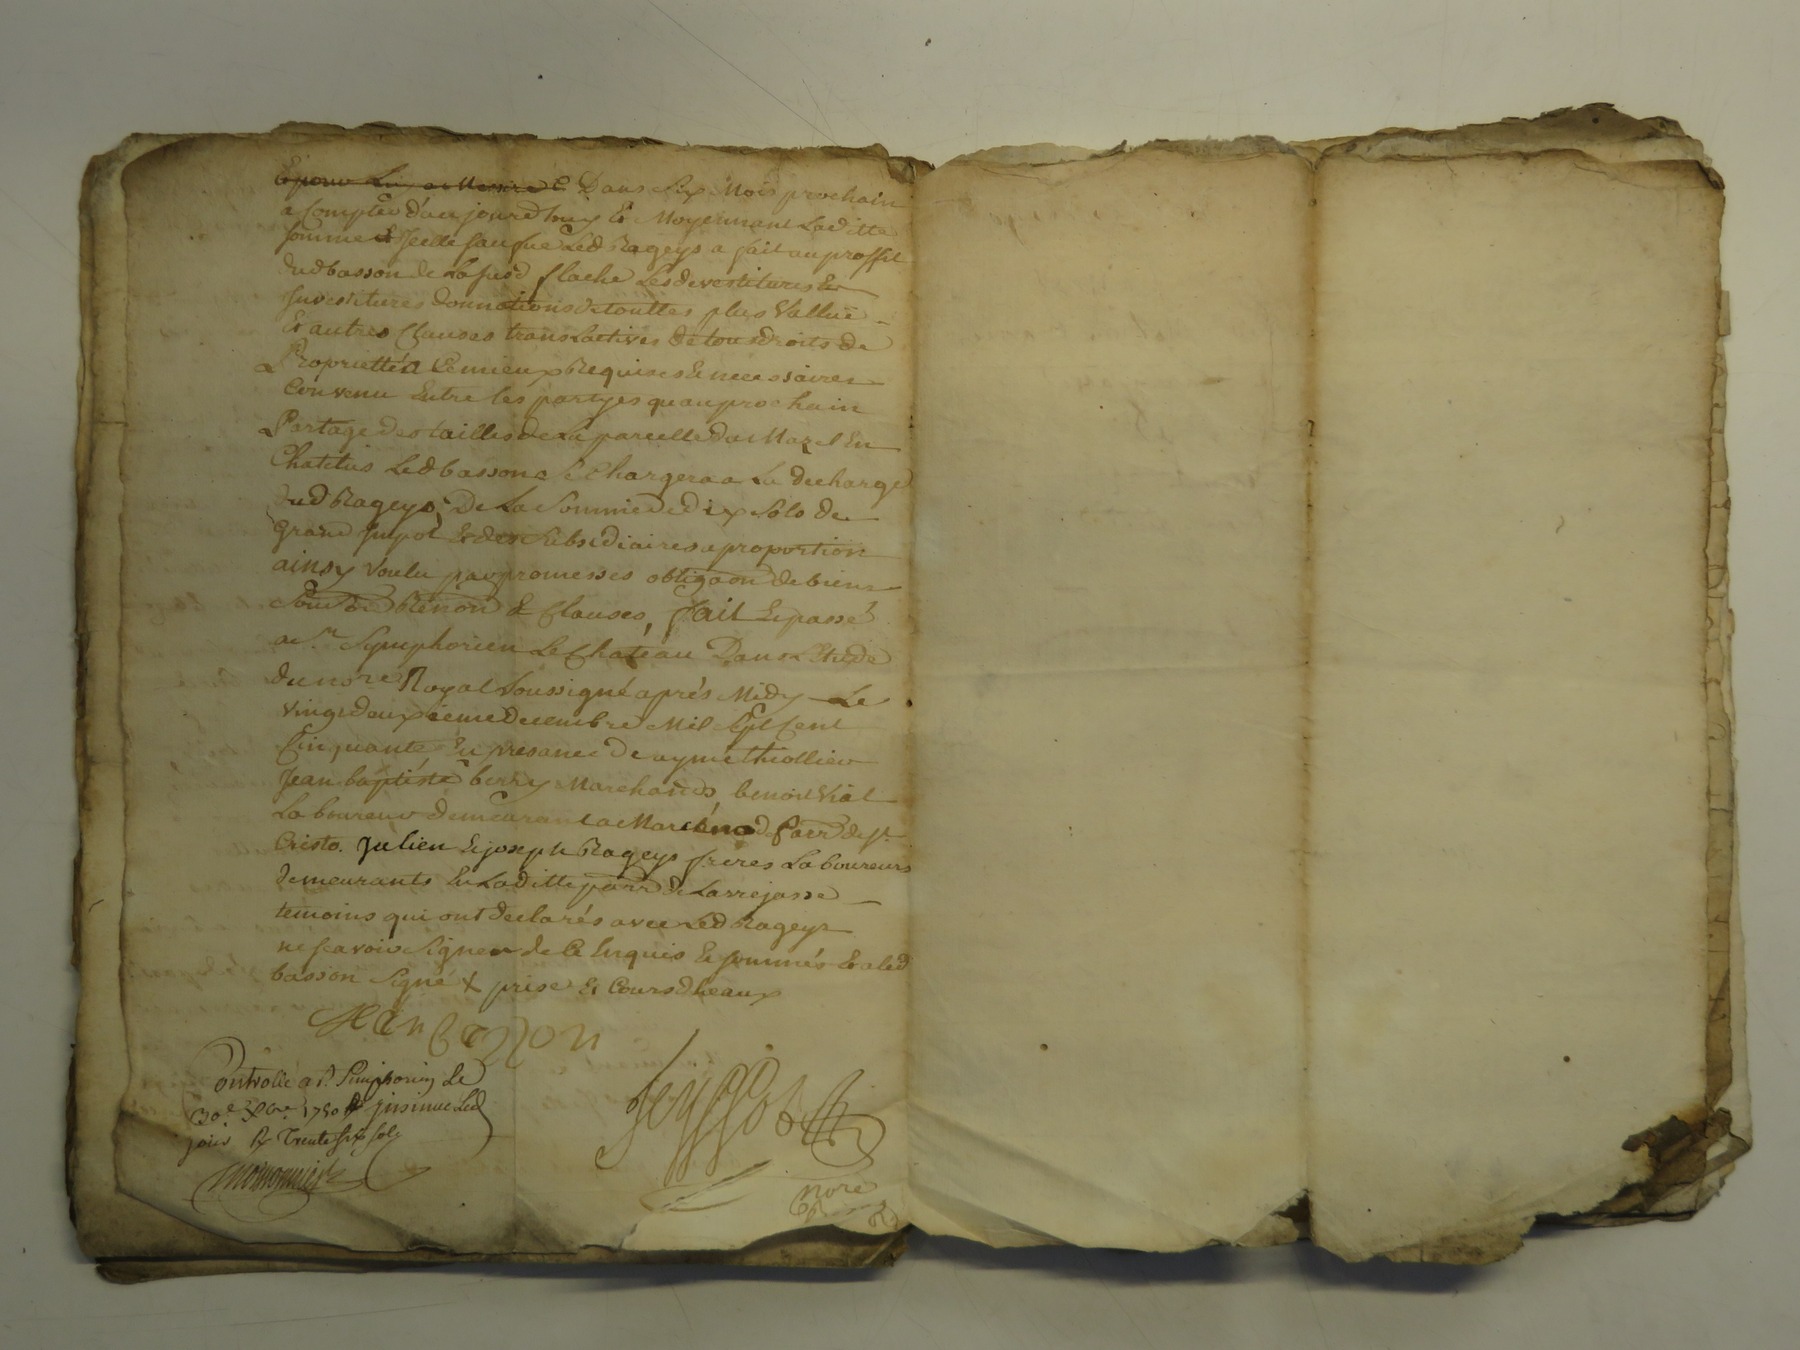 Dans six Mois prochain
a Compter d'aujourdhuy Et Moyennant Laditte
somme led Rageys a fait au proffit
dud basson de Lad flache Les devestitures Et
Investitures donnations de touttes plus Vallue
Et autres Clauses translatives de tous droits de
Proprietté Le mieux Requises Et necessaires
Convenu Entre les partyes qu au prochain
Partage des tailles de La parcelle du Mazel En
Chatelus Led basson se Chargera a La decharge
dud Rageys, De La Somme de dix Sols de
grand Impot Et des subsidiaires a proportion
ainsy Voulu par promesses obligaon de biens
Renon & Clauses, fait Et passé
a St Symphorien Le Chateau Dans L'Etude
du nore Royal Soussigné aprés Midy Le
Vingt deuxieme decembre Mil Sept Cent
Cinquante En presance de ayme thiollier
Jean baptiste berry Marchands, benoit Vial
Laboureur demeurant a Marcenod parr de St
Cristo. Julien Et joseph Rageys freres Laboureurs
demeurants En Laditte parr de Larrejasse
temoins qui ont declarés avec Led Rageys
ne scavoir Signer de Ce Enquis Et sommés Et a led
basson Signé + prise Et Cours dheaux
basson
Controllé a St Simphorien Le
30e Xbre 1750 & insinué Led
jour Rx Trente six sols
nore